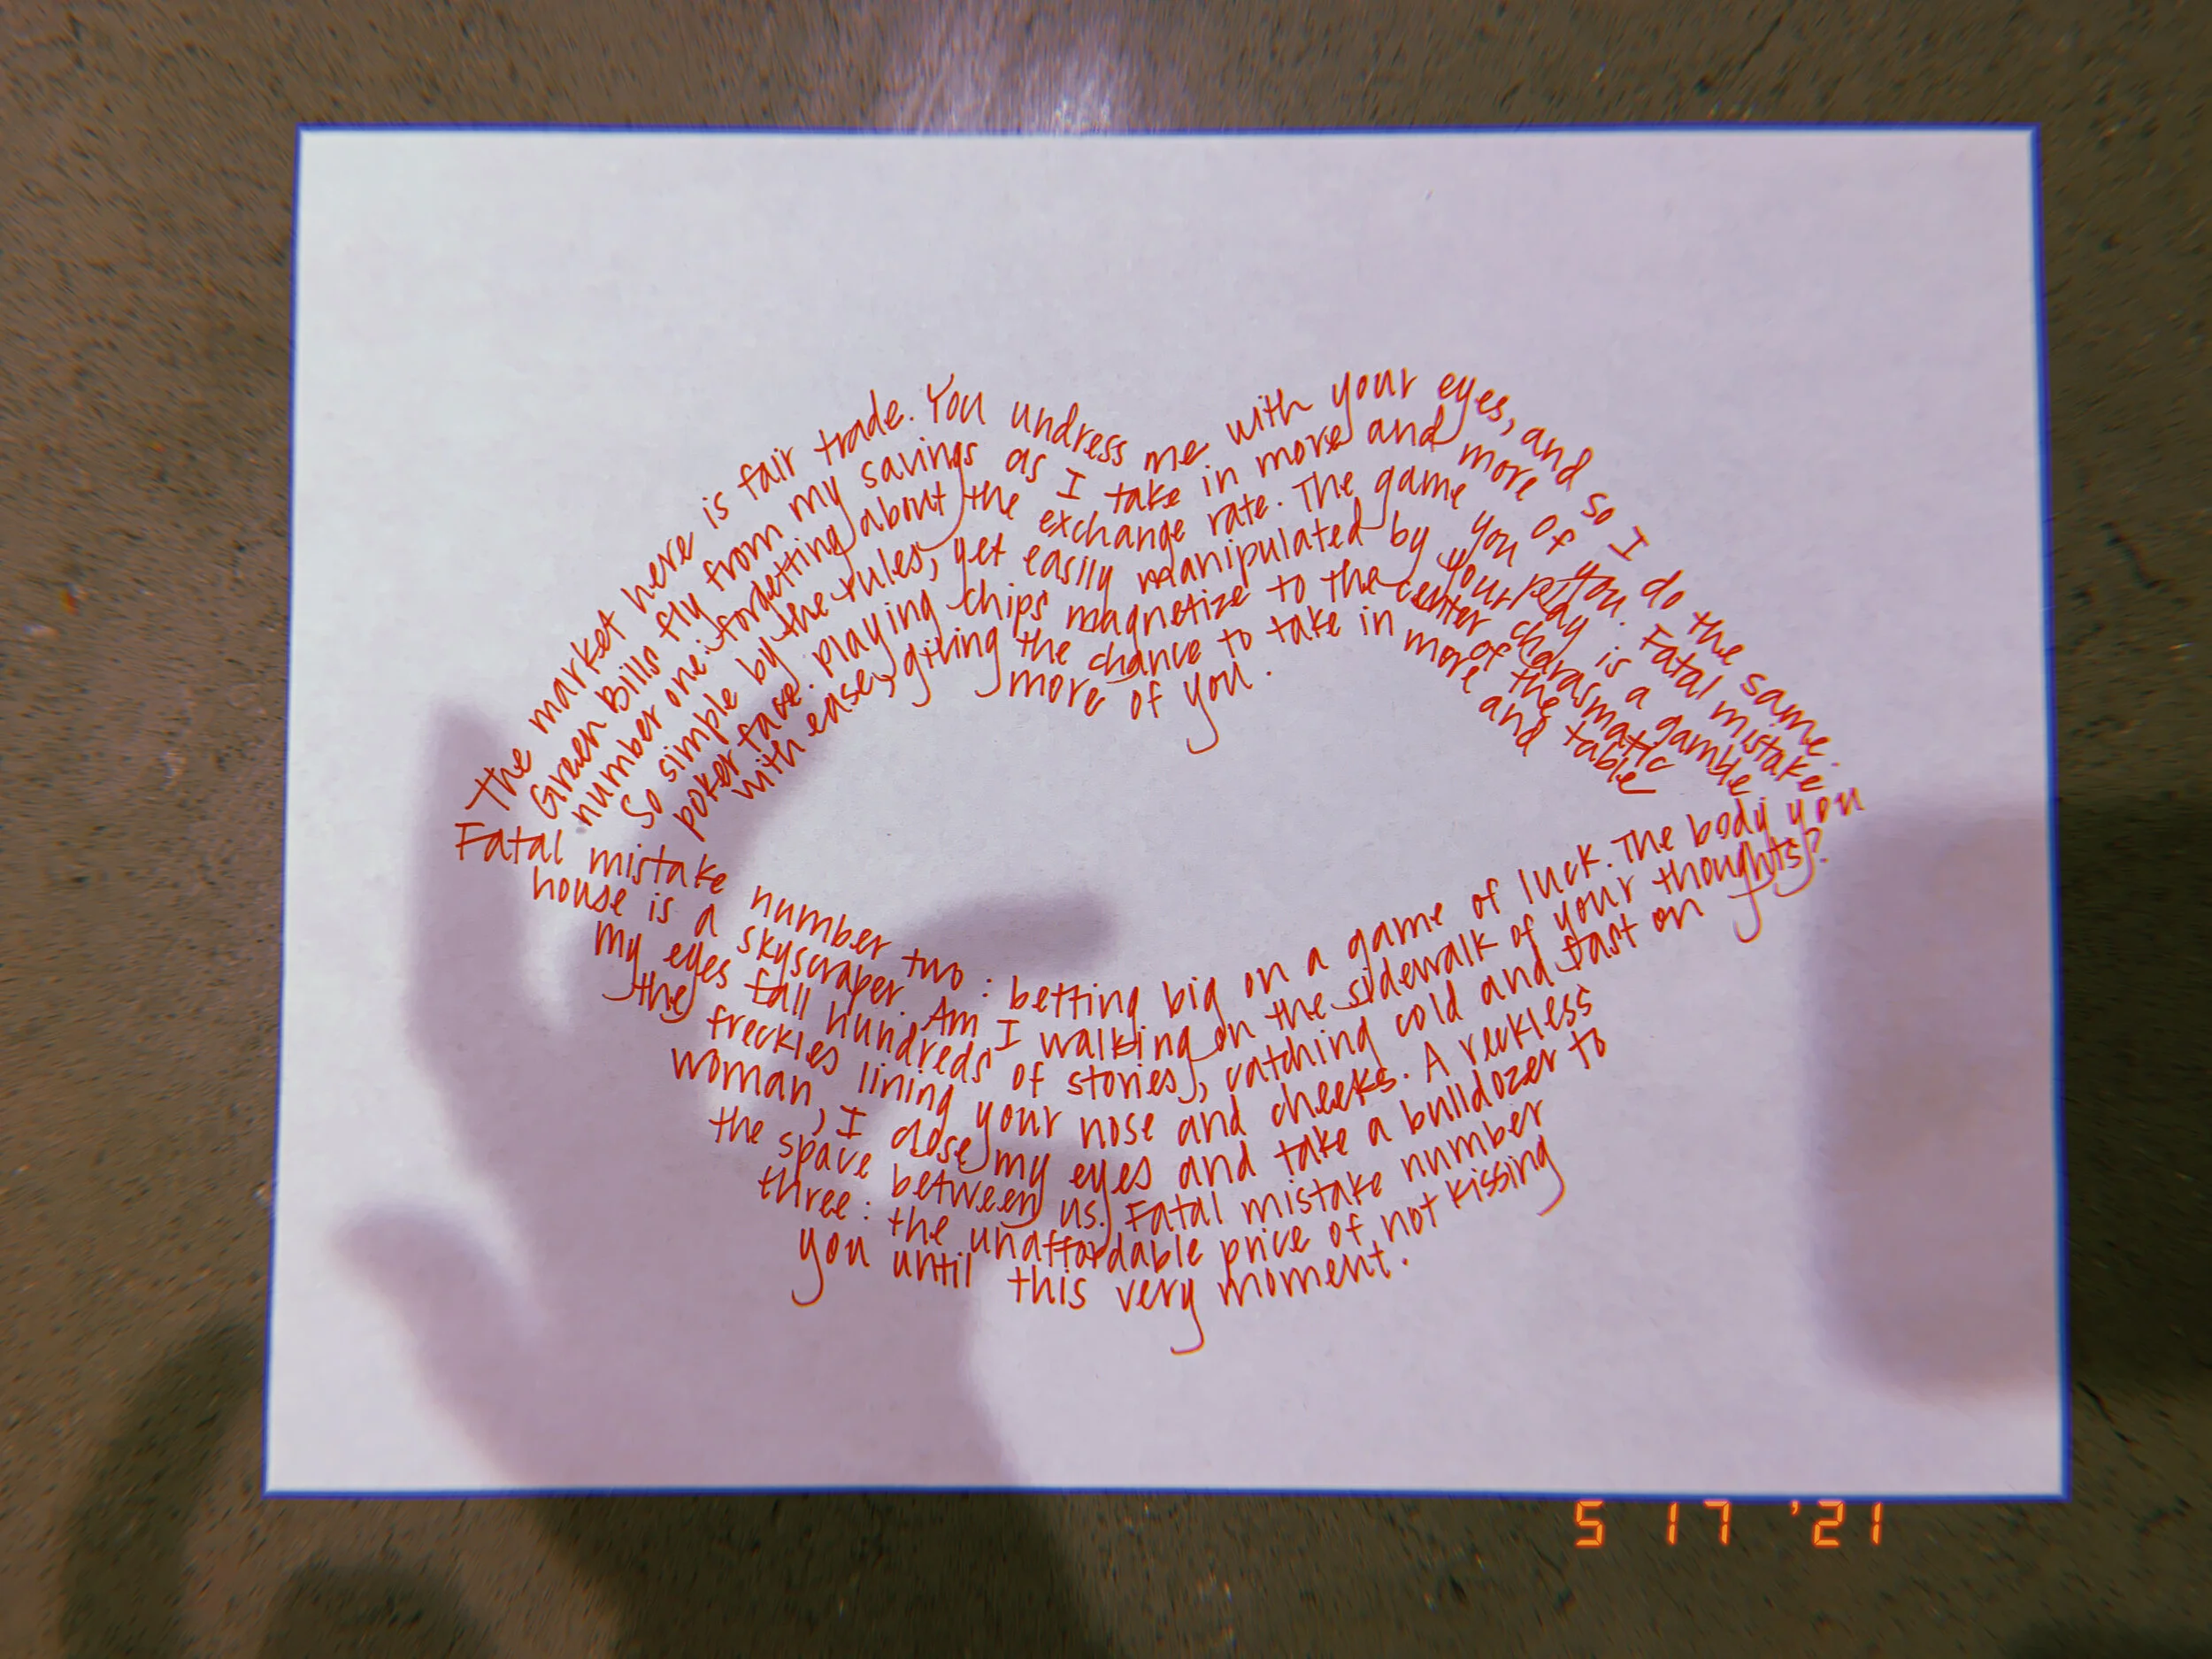 The market here is fair trade. You undress me with your eyes, and so I do the same.
Green Bills fly from my savings as I take in more and more of you. Fatal mistake
number one: forgetting about the exchange rate. The game you play is a gamble
so simple by the rules, yet easily manipulated by your charasmatic
poker face. playing chips magnetize to the center of the table
with ease, giving the chance to take in more and
more of you.
Fatal mistake number two: betting big on a game of luck. The body you
house is a skyscraper. Am I walking on the sidewalk of your thoughts?
my eyes fall hundreds of stories, catching cold and fast on
the freckles lining your nose and cheeks. A reckless
woman, I close my eyes and take a bulldozer to
the space between us. Fatal mistake number
three: the unaffordable price of not kissing
you until this very moment.
5 17 '21